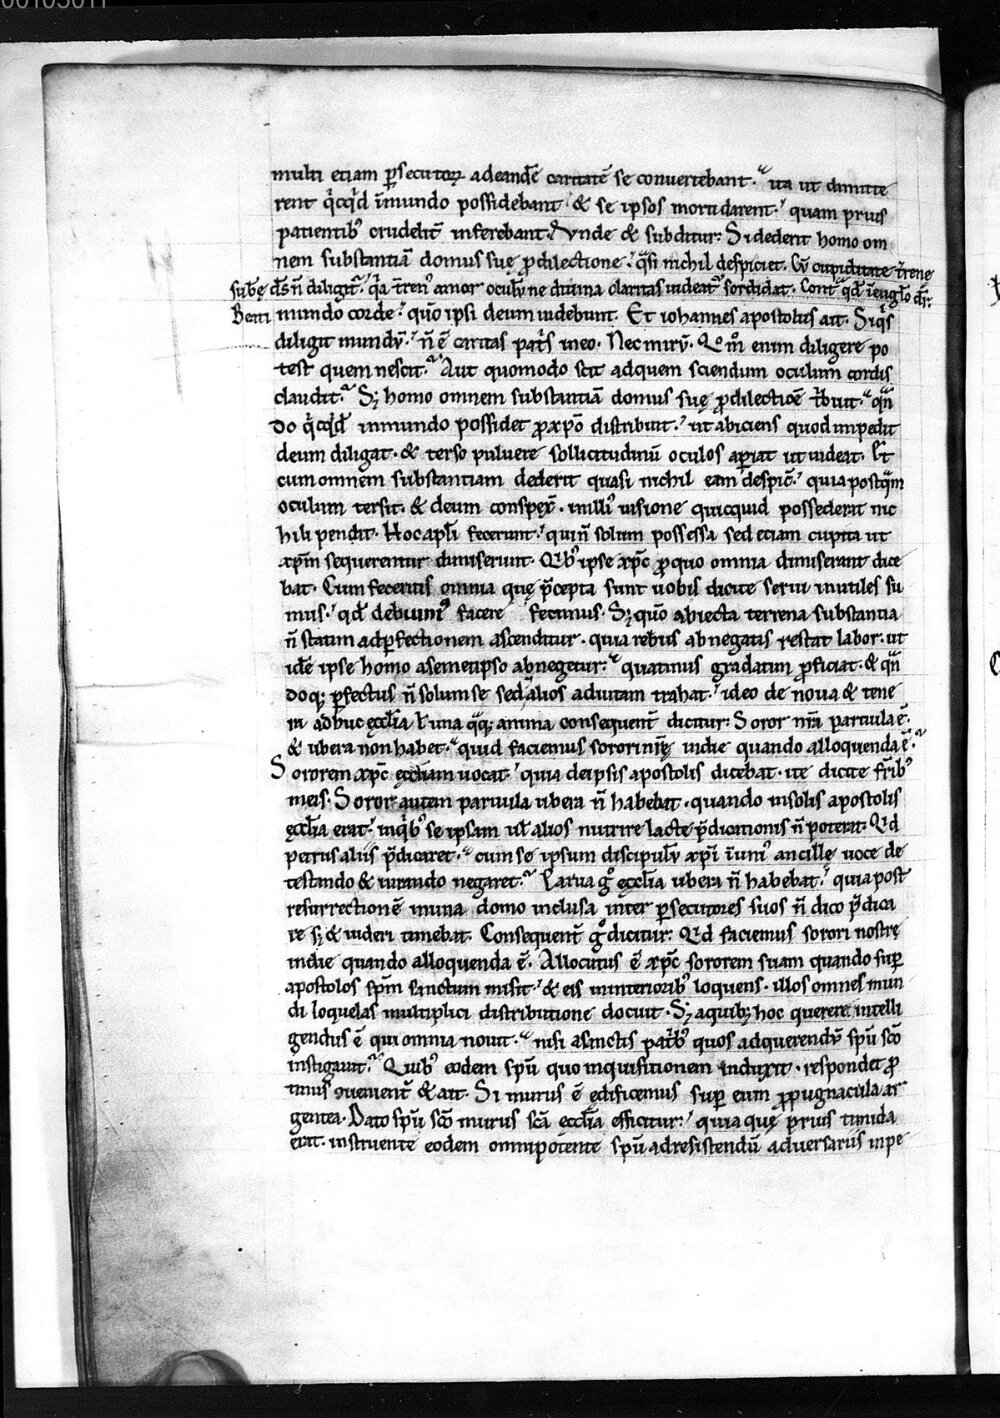 multi etiam ꝑsecutoꝝ ad eandē caritatē se convertebant. ita ut dimitte
rent qͥcqͥd ī mundo possidebant & se ipsos morti darent. quam prius
patientibꝰ crudelit̄ inferebant. Vnde & subditur: Si dederit homo om
nem substantiā domus suę ꝓ dilectione. qͣsi nichil despiciet. Cū cupiditate t̄rene
ds̄ n̄ diligit̄. qͥa t̄renꝰ amor oculū ne diuina claritas uideat᷑ sordidat. Cont̄ qͥd ī euglo dr̄:
Beati mundo corde. quō ipsi deum uidebunt. Et iohannes apostolus ait. Siqͥs
diligit mundū. n̄ ē caritas patͥs in eo. Nec mirū. Qͦmͦ enim diligere po
test quem nescit. Aut quomodo scit ad quem sciendum oculum cordis
claudit. Sꝫ homo omnem substantiā domus suę ꝓ dilectioē tͥbuit. qn̄
do qͥcqͥd in mundo possidet ꝓ xp̄o distribuit. ut abiciens quod impedit
deum diligat. & terso puluere sollicitudinū oculos aꝑiat ut uideat. Et
cum omnem substantiam dederit quasi nichil eam despic̄. quia postqͣm
oculum tersit. & deum conspex̄. in illiꝰ uisione quicquid possederat nic
hili pendit. Hoc apl̄i fecerunt. qui n̄ solum possessa sed etiam cupita ut
xp̄m sequerentur dimiserunt. Qͥbꝰ ipse xp̄c ꝓ quo omnia dimiserant dice
bat. Cum feceritis omnia que p̄cepta sunt uobis dicite serui inutiles su
mus. qd̄ debuimꝰ facere fecimus. Sꝫ quō abiecta terrena substantia
n̄ statim ad ꝑfectionem ascenditur. quia rebus abnegatis restat labor. ut
idē ipse homo a semetipso abnegetur. quatinus gradatim ꝓficiat. & qn̄
doqꝫ ꝑfectus n̄ solum se sed alios ad uitam trahat. ideo de noua & tene
ra adhuc ęccl̄ia ł una qͣqꝫ anima consequent̄ dicitur: Soror nr̄a paruula ē.
& ubera non habet. quid faciemus sorori nr̄ę in die quando alloquenda ē.
Sororem xp̄c ęccl̄iam uocat. quia de ipsis apostolis dicebat. ite dicite fr̄ibꝰ
meis. Soror autem paruula ubera n̄ habebat. quando in solis apostolis
ęccl̄ia erat. in qͥbꝰ se ipsam uł alios nutrire lacte p̄dicationis n̄ poterat. Qͥd
petrus aliis p̄dicaret. cum se ipsum discipulū xp̄i ī uniꝰ ancillę uoce de
testando & iurando negaret. Parua gͦ ęccl̄ia ubera n̄ habebat. quia post
resurrectionē in una domo inclusa inter ꝑsecutores suos n̄ dico p̄dica
re sꝫ & uideri timebat. Consequent̄ gͦ dicitur: Qͥd faciemus sorori nostrę
in die quando alloquenda ē. Allocutus ē xp̄c sororem suam quando suꝑ
apostolos sp̄m sanctum misit. & eis in interioribꝰ loquens. illos omnes mun
di loquelas multiplici distributione docuit. Sꝫ a quibꝫ hoc querere intelli
gendus ē qui omnia nouit. nisi a sanctis patͥbꝰ quos ad querendū sp̄u sc̄o
instigauit. Quibꝰ eodem sp̄u quo inquisitionem induxit. respondet ꝓ
tinus & ait. Si murus ē ędificemus suꝑ eum ꝓpugnacula ar
gentea. Dato sp̄u sc̄o murus sc̄a eccl̄ia efficitur. quia quę prius timida
erat. instruente eodem omnipotente sp̄u ad resistendū adversariis inpe